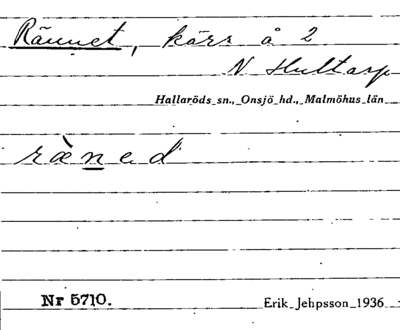 Rännet, kärr å 2
N Hultarp
Hallaröds sn., Onsjö hd., Malmöhus län
ràned
Nr 5710.
Erik Jehpsson 1936